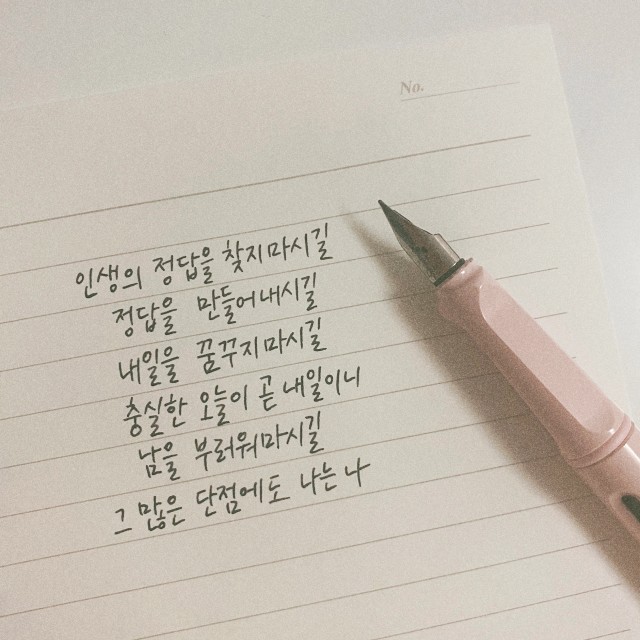 No.
인생의 정답을 찾지마시길
정답을 만들어내시길
내일을 꿈꾸지마시길
충실한 오늘이 곧 내일이니
남을 부러워마시길
그 많은 단점에도 나는 나